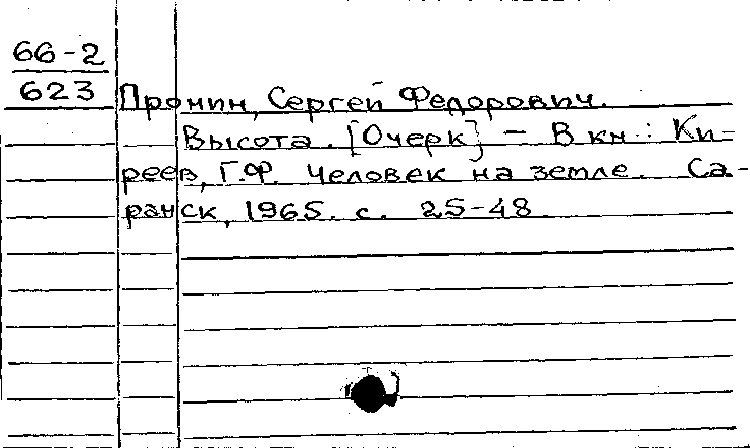 66-2
623
Пронин, Сергей Федорович.
Высота. [Очерк] - В кн.: Ки-
реев, Г.Ф. Человек на земле. Са-
ранск, 1965. с. 25-48